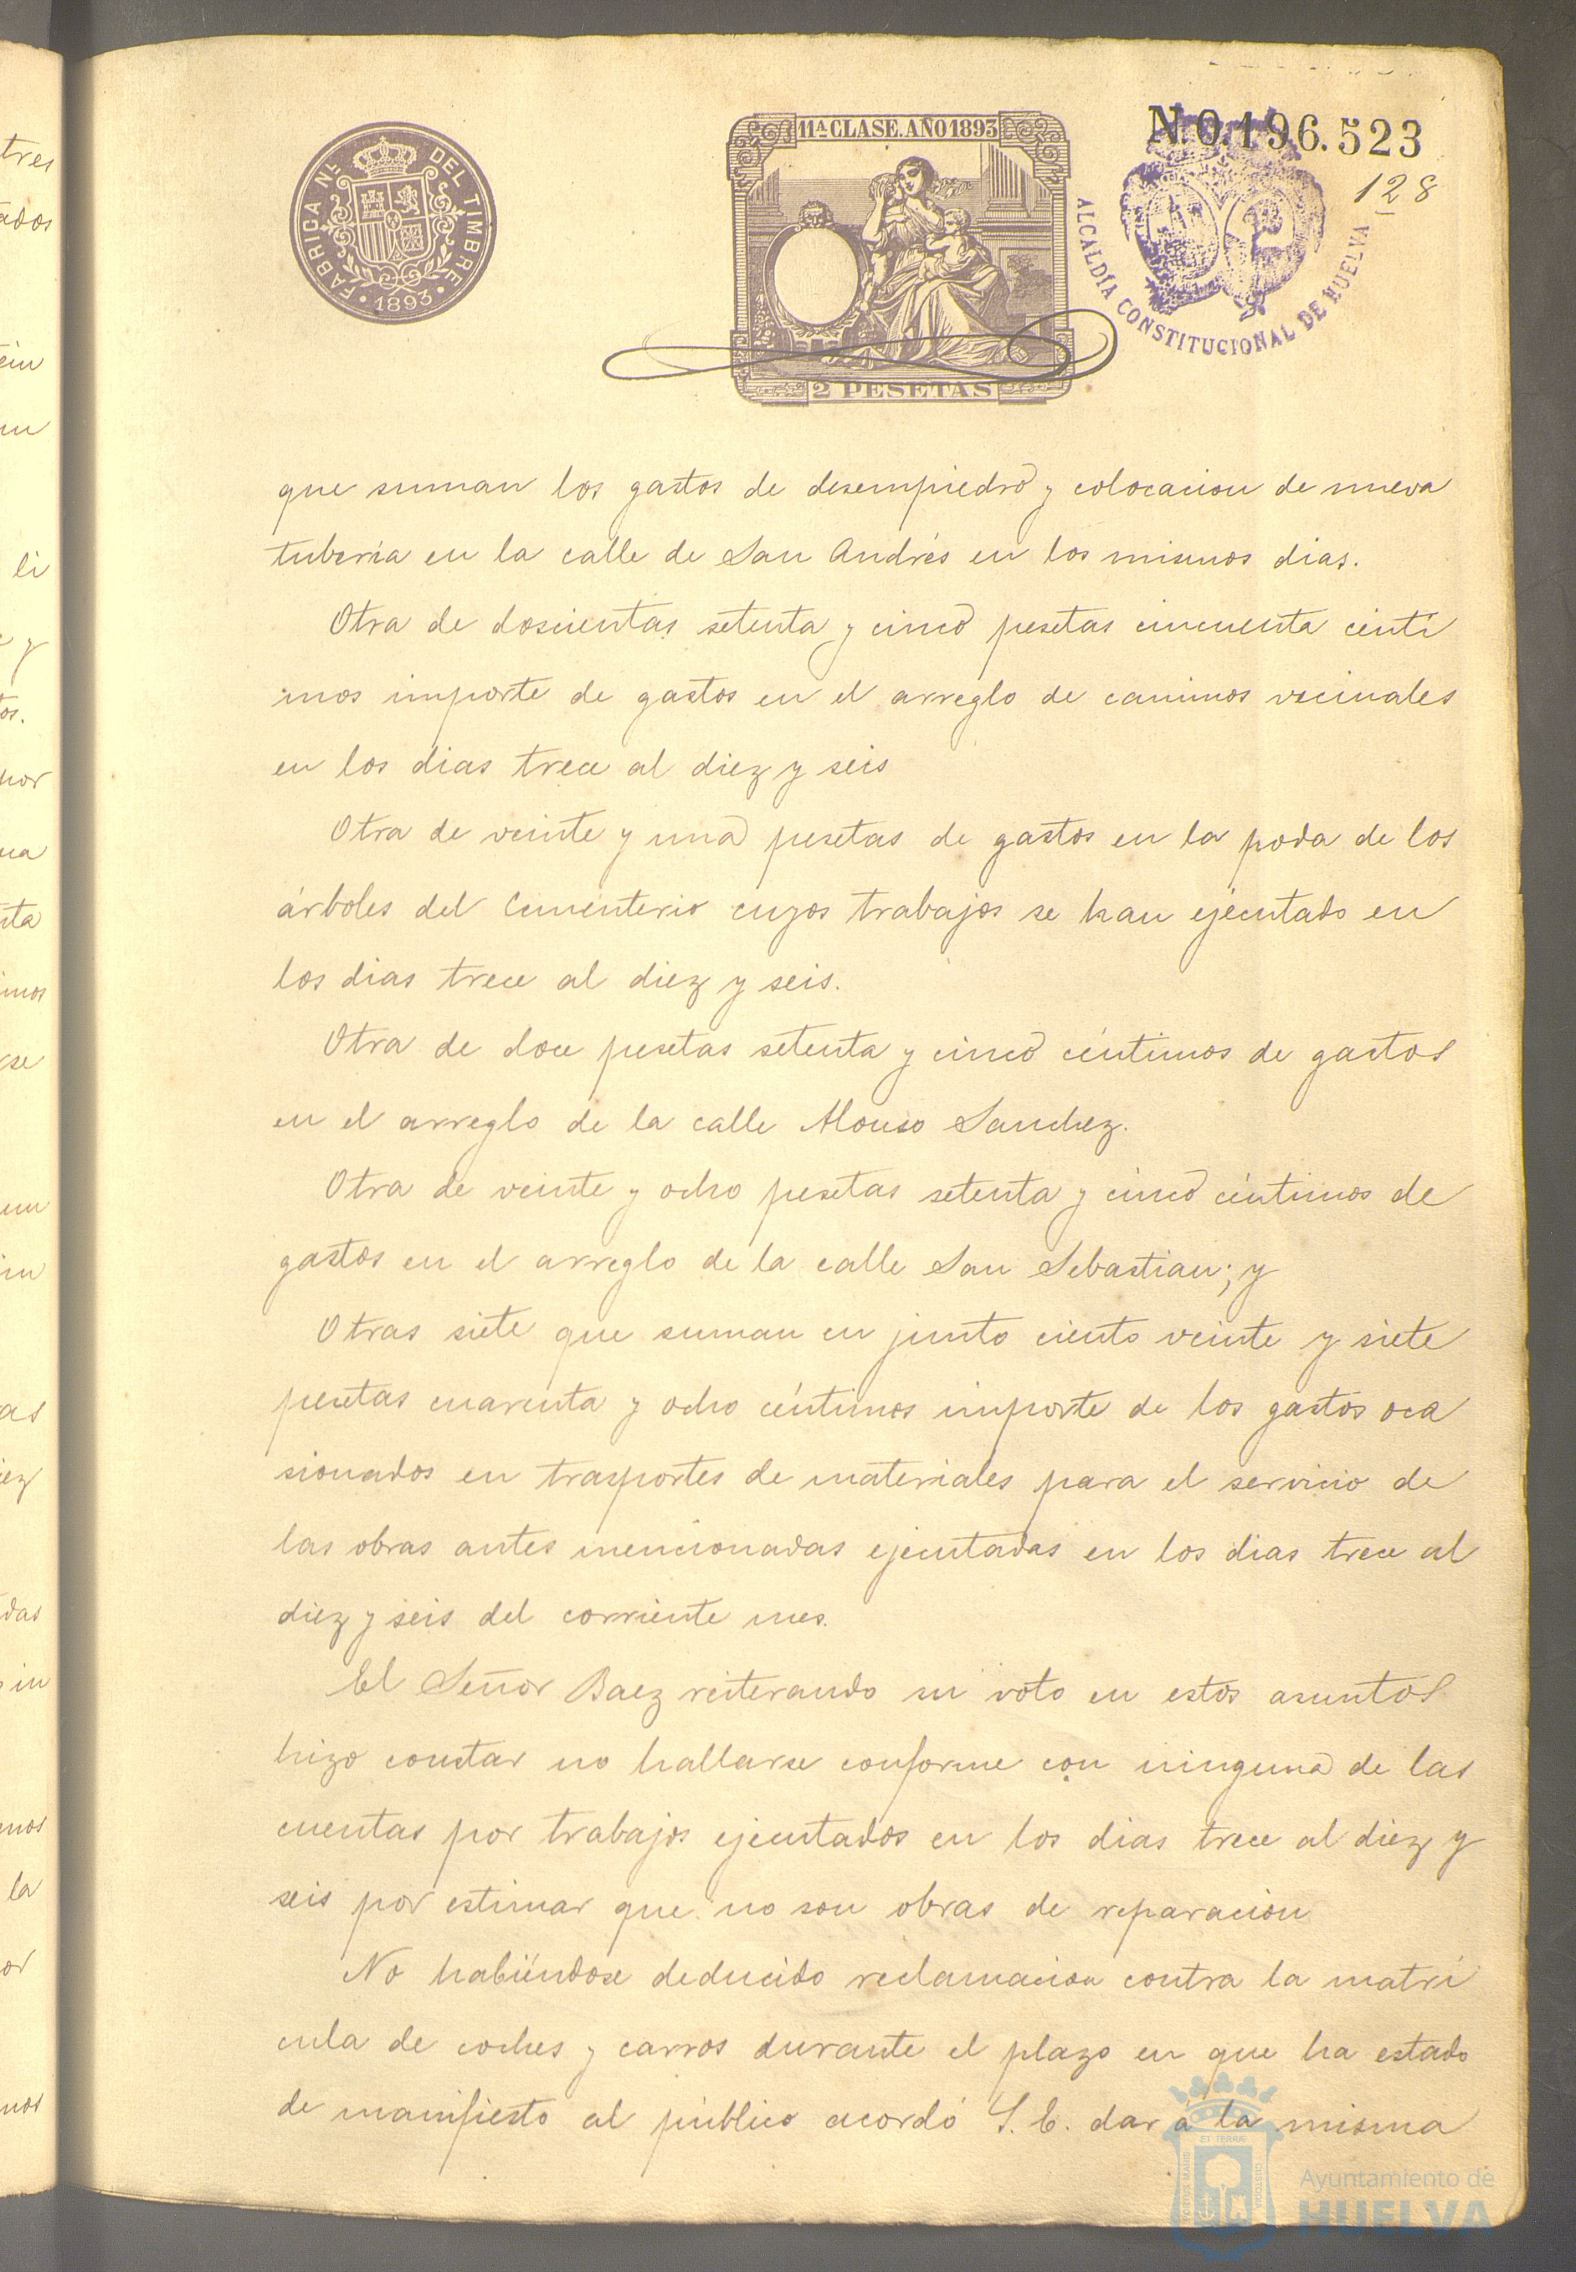 FABRICA Nˡ DEL TIMBRE
1893
11ª CLASE. AÑO 1893
2 PESETAS
N.0.196.523
128
ALCALDÍA CONSTITUCIONAL DE HUELVA
que suman los gastos de desempiedro y colocacion de nueva
tubería en la calle de San Andrés en los mismos dias.
Otra de doscientas setenta y cinco pesetas cincuenta centi
mos importe de gastos en el arreglo de caminos vecinales
en los dias trece al diez y seis
Otra de veinte y una pesetas de gastos en la poda de los
árboles del Cementerio cuyos trabajos se han ejecutado en
los dias trece al diez y seis.
Otra de doce pesetas setenta y cinco céntimos de gastos
en el arreglo de la calle Alonso Sanchez.
Otra de veinte y ocho pesetas setenta y cinco céntimos de
gastos en el arreglo de la calle San Sebastian; y
Otras siete que suman en junto ciento veinte y siete
pesetas cuarenta y ocho céntimos importe de los gastos oca
sionados en trasportes de materiales para el servicio de
las obras antes mencionadas ejecutadas en los dias trece al
diez y seis del corriente mes.
El Señor Baez reiterando su voto en estos asuntos
hizo constar no hallarse conforme con ninguna de las
cuentas por trabajos ejecutados en los dias trece al diez y
seis por estimar que no son obras de reparacion
No habiéndose deducido reclamacion contra la matrí
cula de coches y carros durante el plazo en que ha estado
de manifiesto al público acordó S. E. dar á la misma
Ayuntamiento de
HUELVA